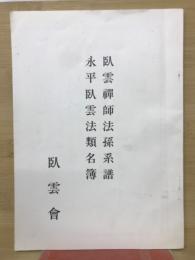 臥雲禪師法孫系譜
永平臥雲法類名簿
臥雲會